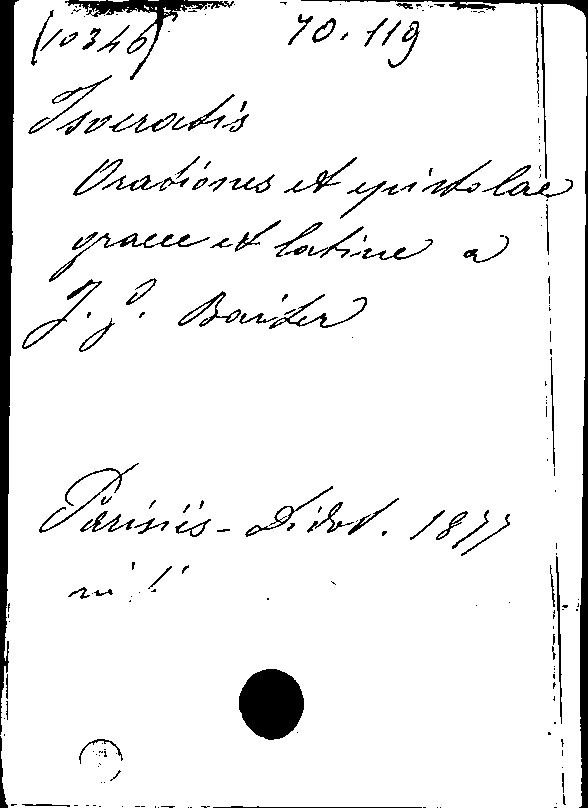 (10346) 70.119
Isocratis
Orationes et epistolae
graece et latine a
J. G. Baiter
Parisiis - Didot. 1877